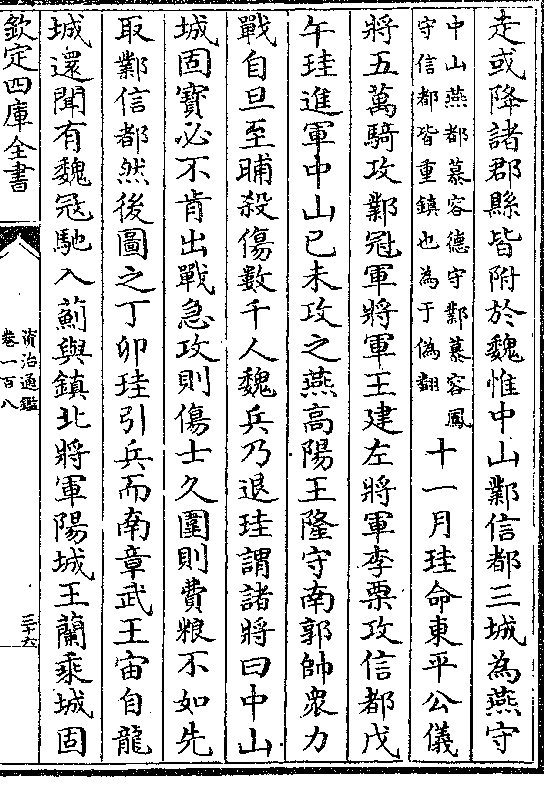 走或降諸郡縣皆附於魏惟中山鄴信都三城為燕守
中山燕都慕容德守鄴慕容鳳
守信都皆重鎮也為于偽翻
十一月珪命東平公儀
將五萬騎攻鄴冠軍將軍王建左將軍李栗攻信都戊
午珪進軍中山已未攻之燕高陽王隆守南郭帥衆力
戰自旦至晡殺傷數千人魏兵乃退珪謂諸將曰中山
城固寶必不肯出戰急攻則傷士久圍則費粮不如先
取鄴信都然後圖之丁卯珪引兵而南章武王宙自龍
城還聞有魏冦馳入薊與鎮北將軍陽城王蘭乘城固
欽定四庫全書
資治通鑑
卷一百八
三十六